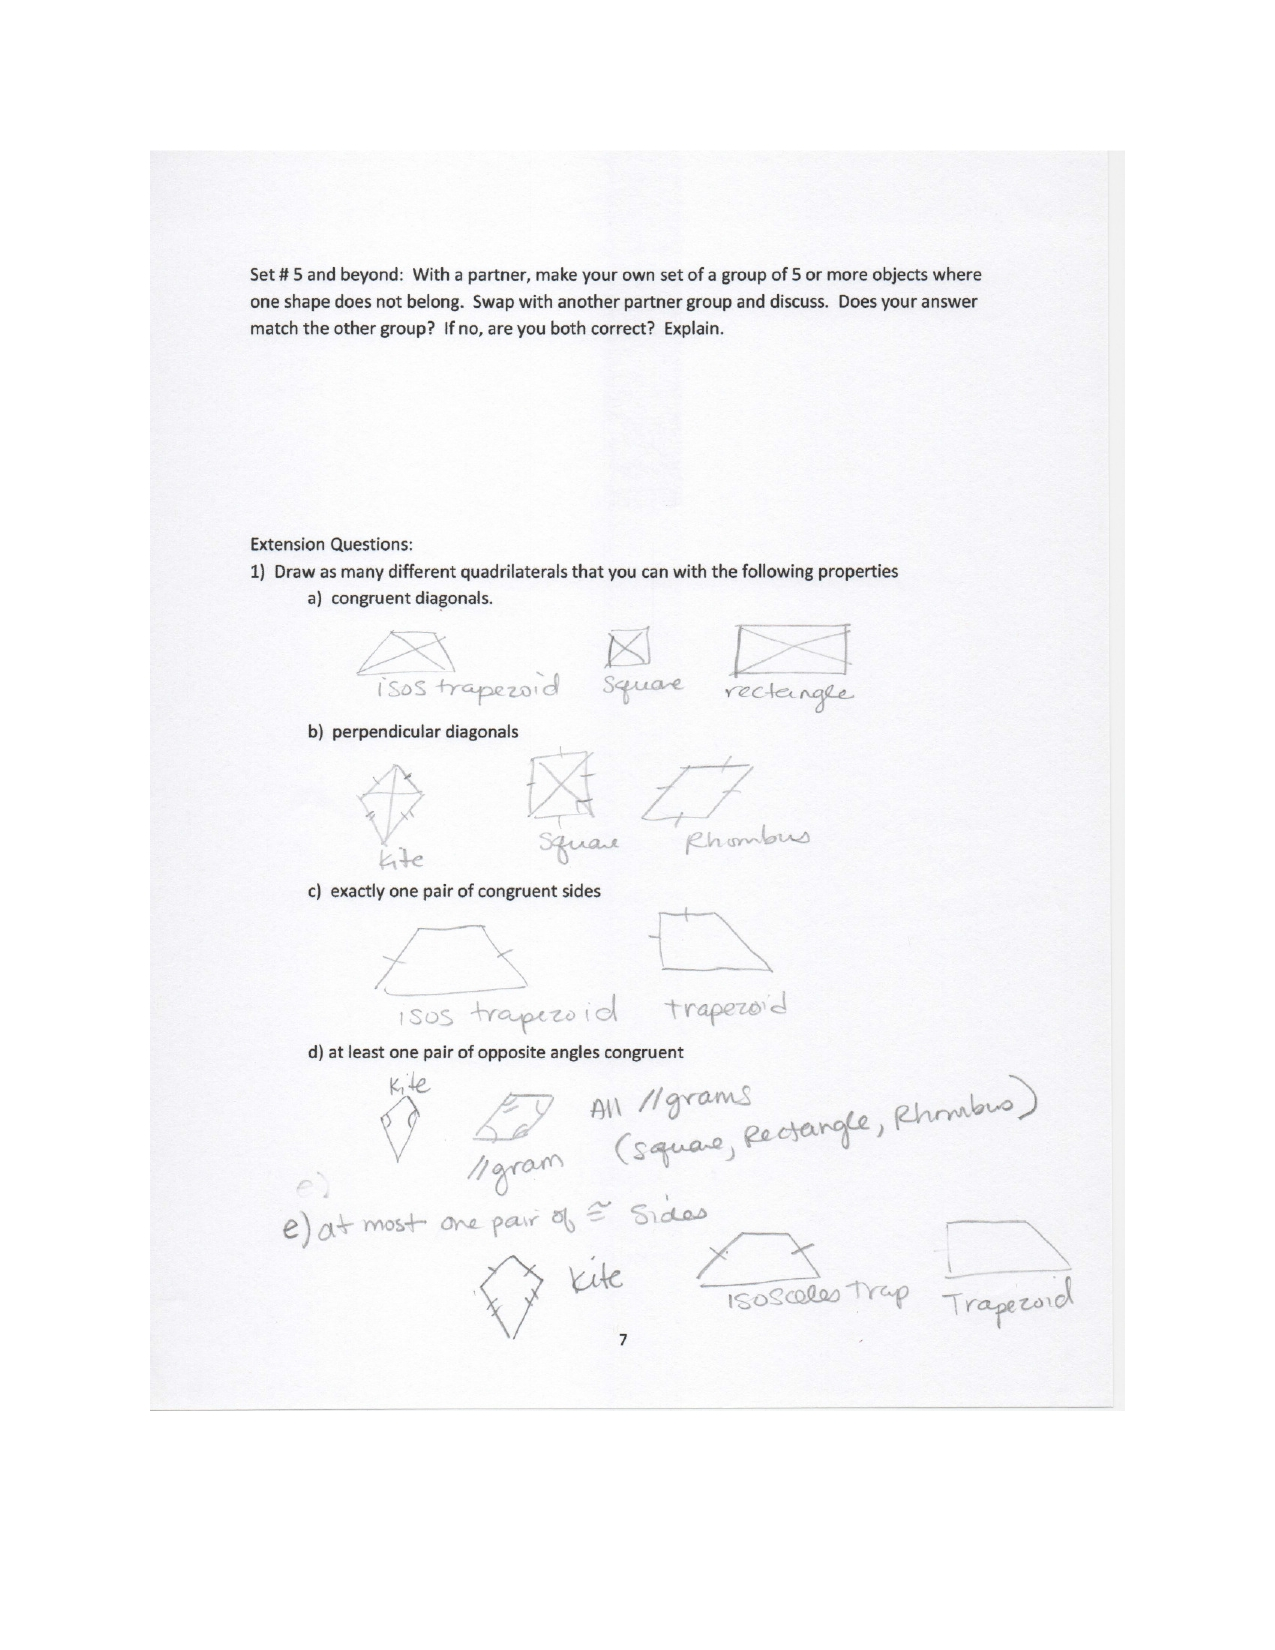 Set # 5 and beyond: With a partner, make your own set of a group of 5 or more objects where
one shape does not belong. Swap with another partner group and discuss. Does your answer
match the other group? If no, are you both correct? Explain.
Extension Questions:
1) Draw as many different quadrilaterals that you can with the following properties
a) congruent diagonals.
isos trapezoid Square rectangle
b) perpendicular diagonals
Kite Square Rhombus
c) exactly one pair of congruent sides
isos trapezoid trapezoid
d) at least one pair of opposite angles congruent
Kite
//gram All //grams
(square, Rectangle, Rhombus)
e)
e) at most one pair of ≅ sides
Kite Isosceles trap Trapezoid
7